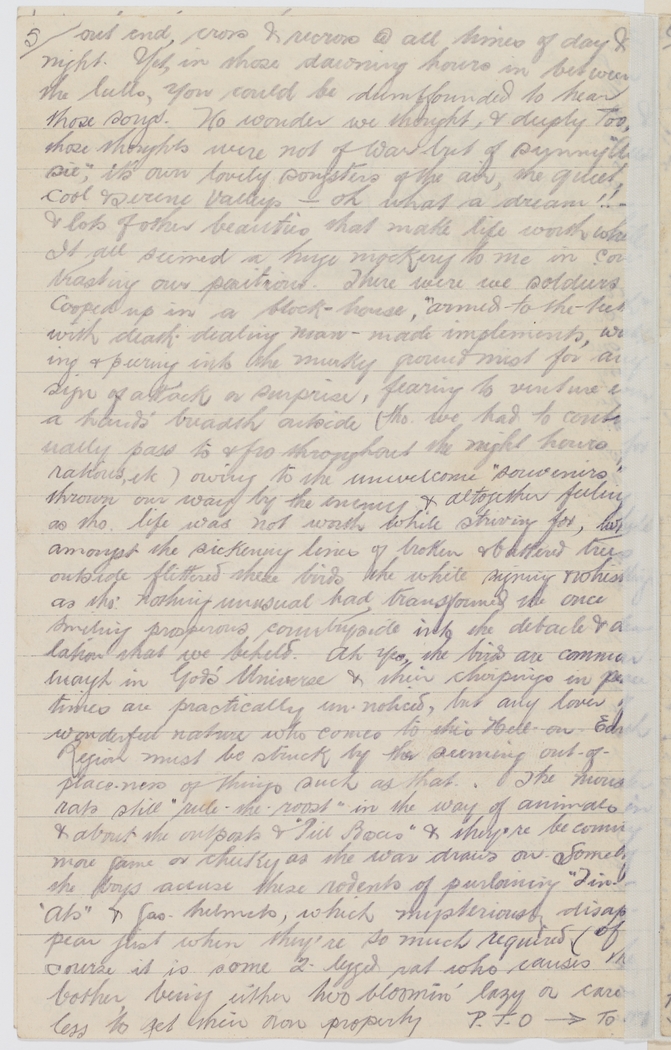 5/ out end, cross & recross @ all times of day &
night. Yet, in those dawning hours in between
the lulls, you could be dumbfounded to hear
those songs. No wonder we thought, & deeply too,
those thoughts were not of War but of sunny
sie", its own lovely songsters of the air, the quiet,
cool & serene Valleys – oh what a dream!! –
& lots of other beauties that make life worth
It all seemed a huge mockery to me in con
trasting our positions. There were we soldiers
cooped up in a block-house, "armed-to-the-teeth
with death-dealing man-made implements,
ing & peering into the murky ground mist for any
sign of attack or surprise, fearing to venture
a hand's breadth outside (tho. we had to conti
nually pass to & fro throughout the night hours
rations, etc) owing to the unwelcome "souveners"
thrown our way by the enemy & altogether feeling
as tho. life was not worth while striving for,
amongst the sickening lines of broken & battered trees
outside flittered these birds the while
as tho' nothing unusual had transformed the once
smiling prosperous countryside into the debacle &
lation that we beheld. Ah yes, the birds are common
enough in God's Universe & their chirpings in
times are practically un-noticed, but any lover
wonderful nature who comes to this Hell-on Earth
Region must be struck by the seeming out-of-
place-ness of things such as that. The
rats still "rule-the-roost" in the way of animals
& about the outposts & "Pill Boxes" & they're becoming
more game or cheeky as the war draws on.
the boys accuse these rodents of purloining "Tin-
'Ats" & Gas-helmets, which mysteriously disap-
pear just when they're so much required (of
course it is some 2-legged rat who causes the
bother being either too bloomin' lazy or care
less to get their own property P.T.O → To